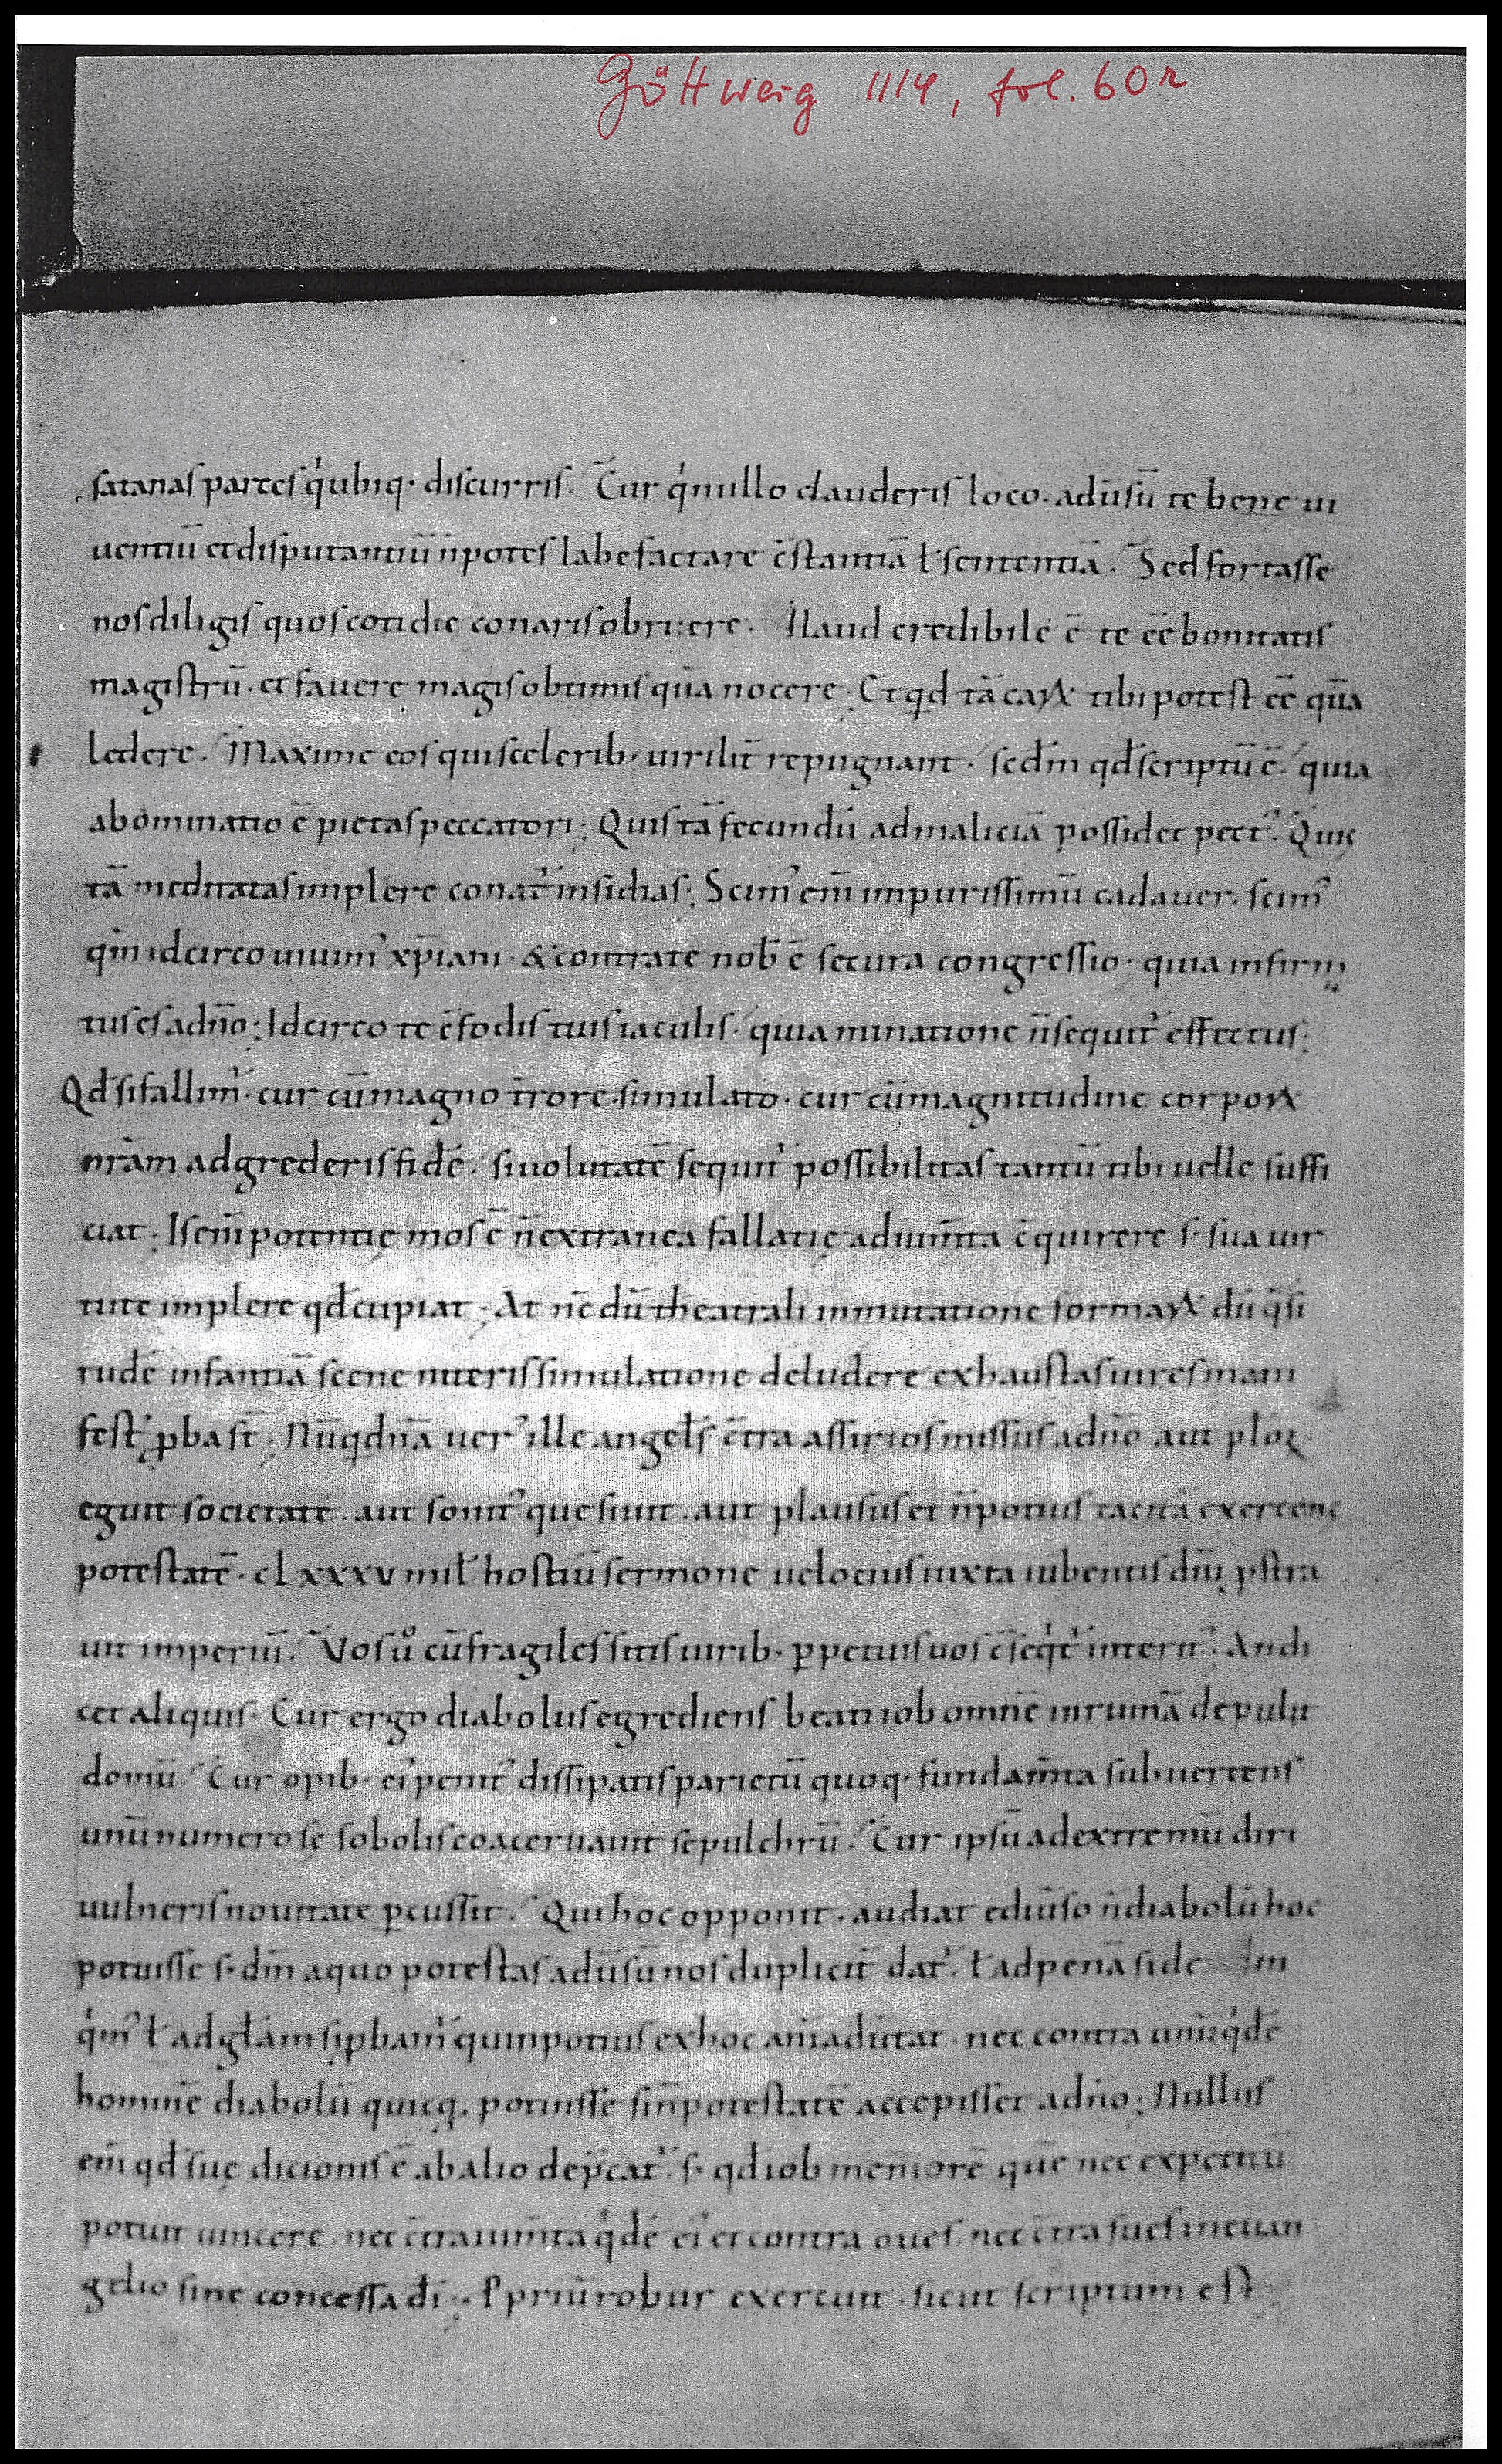 Göttweig 1114, fol. 60r
satanas partes qͥ ubiq· discurris. Cur qͥ nullo clauderis loco. adu̅su̅ te bene ui
uentiu̅ et disputantiu̅ n̅ potes labefactare c̅stantia̅ ł sententia̅. Sed fortasse
nos diligis quos cotidie conaris obruere. Haud credibile e̅ te ee̅ bonitatis
magistru̅. et fauere magis obtimis qua̅ nocere. Et qͥd ta̅ caꝝ tibi potest ee̅ qua̅
ledere. Maxime eos qui scelerib· uirilit̅ repugnant. sed in̅ qd̅ scriptu̅ e̅. quia
abominatio e̅ pietas peccatori. Quis ta̅ fecundu̅ ad malicia̅ possidet pect᾿. Quis
ta̅ meditatas implere conat᾿ insidias. Scim᾿ eni̅ impurissimu̅ cadauer. scim᾿
qm̅ idcirco uiuim᾿ xp̅iani. & contra te nob̅ e̅ secura congressio. quia infirm
tus es a dn̅o. Idcirco te c̅fodis tuis iaculis. quia minatione n̅ sequit᾿ effectus.
Qd̅ si fallim᾿. cur cu̅ magno t̅rore simulato. cur cu̅ magnitudine corpoꝝ
nr̅am adgrederis fide̅. si uolu̅tate̅ sequit᾿ possibilitas tantu̅ tibi uelle suffi
ciat. Isteni̅ potentie̜ mos e̅ n̅ extranea fallacie̜ adium̅ta c̅quirere s· sua uir
tute implere qd̅ cupiat. At n̅c du̅ theatrali inmutatione formaꝝ du̅ qͣsi
rude̅ infantia̅ scene niteris simulatione deludere exhaustas uires mani
fest᾿ ꝓbasti̅. Nu̅qͥdna̅ uer᾿ ille angel̅s c̅tra assirios missus a dn̅o aut ploꝝ
eguit societate. aut sonit᾿ que̜siuit. aut plausus et n̅ potius tacita̅ exercens
potestate̅. clxxxv mil̅ hostiu̅ sermone uelocius iuxta iubentis dn̅i p̅stra
uit imperiu̅. Vos uͦ cu̅ fragiles sitis uirib· ꝑpetuus uos c̅seqͥt᾿ interit᾿. An di
cet aliquis. Cur ergo diabolus egrediens beati iob omne̅ in ruina̅ depulit
domu̅. Cur opib· ei᾿ penit᾿ dissipatis parietu̅ quoq· fundam̅ta subuertens
unu̅ numerose sobolis coaceruauit sepulchru̅. Cur ipsu̅ ad extremu̅ diri
uulneris nouitate ꝑcussit. Qui hoc opponit. audiat ediu̅so n̅ diabolu̅ hoc
potuisse s· dm̅ a quo potestas adu̅su̅ nos duplicit̅ dat᾿. ł ad pena̅ si de
qͥm᾿ ł ad gl̅am si ꝓbam᾿ quin potius ex hoc ani̅adu̅tat. nec contra unu̅ qͥde̅
homine̅ diabolu̅ quicq· potuisse si n̅ potestate̅ accepisset a dn̅o. Nullus
eni̅ qd̅ sue̜ dicionis e̅ ab alio dep̅cat᾿. s· qd̅ iob memore̅ que̅ nec expetitu̅
potuit uincere. nec c̅tra ium̅ta qͥde̅ ei᾿ et contra oues. nec c̅tra sues in euan
gelio sine concessa di̅. ł priu̅ robur exercuit. sicut scriptum est